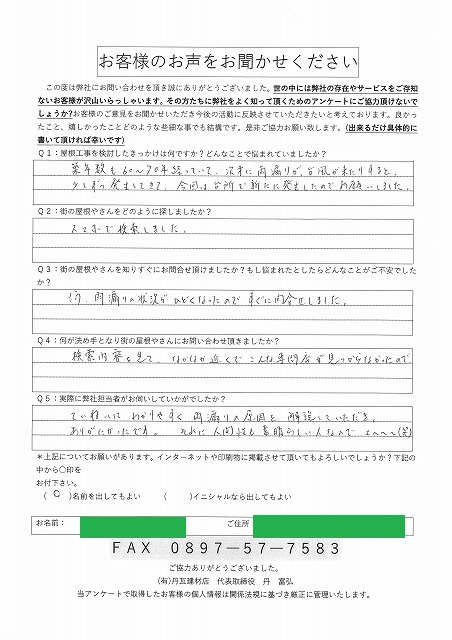 お客様のお声をお聞かせください
この度は弊社にお問い合わせを頂き誠にありがとうございました。世の中には弊社の存在やサービスをご存知
ないお客様が沢山いらっしゃいます。その方たちに弊社をよく知って頂くためのアンケートにご協力頂けないで
しょうか?お客様のご意見をお聞かせいただき今後の活動に反映させていただきたいと考えております。良かっ
たこと、嬉しかったことどのような些細な事でも結構です。是非ご協力お願い致します。(出来るだけ具体的に
書いて頂ければ幸いです)
Q１：屋根工事を検討したきっかけは何ですか？どんなことで悩まれていましたか？
築年数も60〜70年経っていて、次第に雨漏りが、台風が来たりすると、
少しずつ発生してきて、今回は台所で新たに発生したのでお願いしました。
Q２：街の屋根やさんをどのように探しましたか？
スマホで検索しました。
Q３：街の屋根やさんを知りすぐにお問合せ頂けましたか？もし悩まれたとしたらどんなことがご不安でした
か？
もう、雨漏りの状況がひどくなったのですぐに問合せしました。
Q４：何が決め手となり街の屋根やさんにお問い合わせ頂きましたか？
検索内容を見て、なかなか近くでこんな専門店が見つからなかったので
Q５：実際に弊社担当者がお伺いしていかがでしたか？
てい ねいに わかりやすく 雨漏りの原因を 解説していただき、
ありがたかったです。 それに 人間性も素晴らしい人なので (笑)
＊上記についてお願いがあります。インターネットや印刷物に掲載させて頂いてもよろしいでしょうか？下記の
中から〇印を
お付下さい。
（ ○ ）名前を出してもよい （ ）イニシャルなら出してもよい
お名前： ご住所
FAX 0897－57－7583
ご協力ありがとうございました。
(有)丹瓦建材店 代表取締役 丹 富弘
当アンケートで取得したお客様の個人情報は関係法規に基づき厳正に管理いたします。